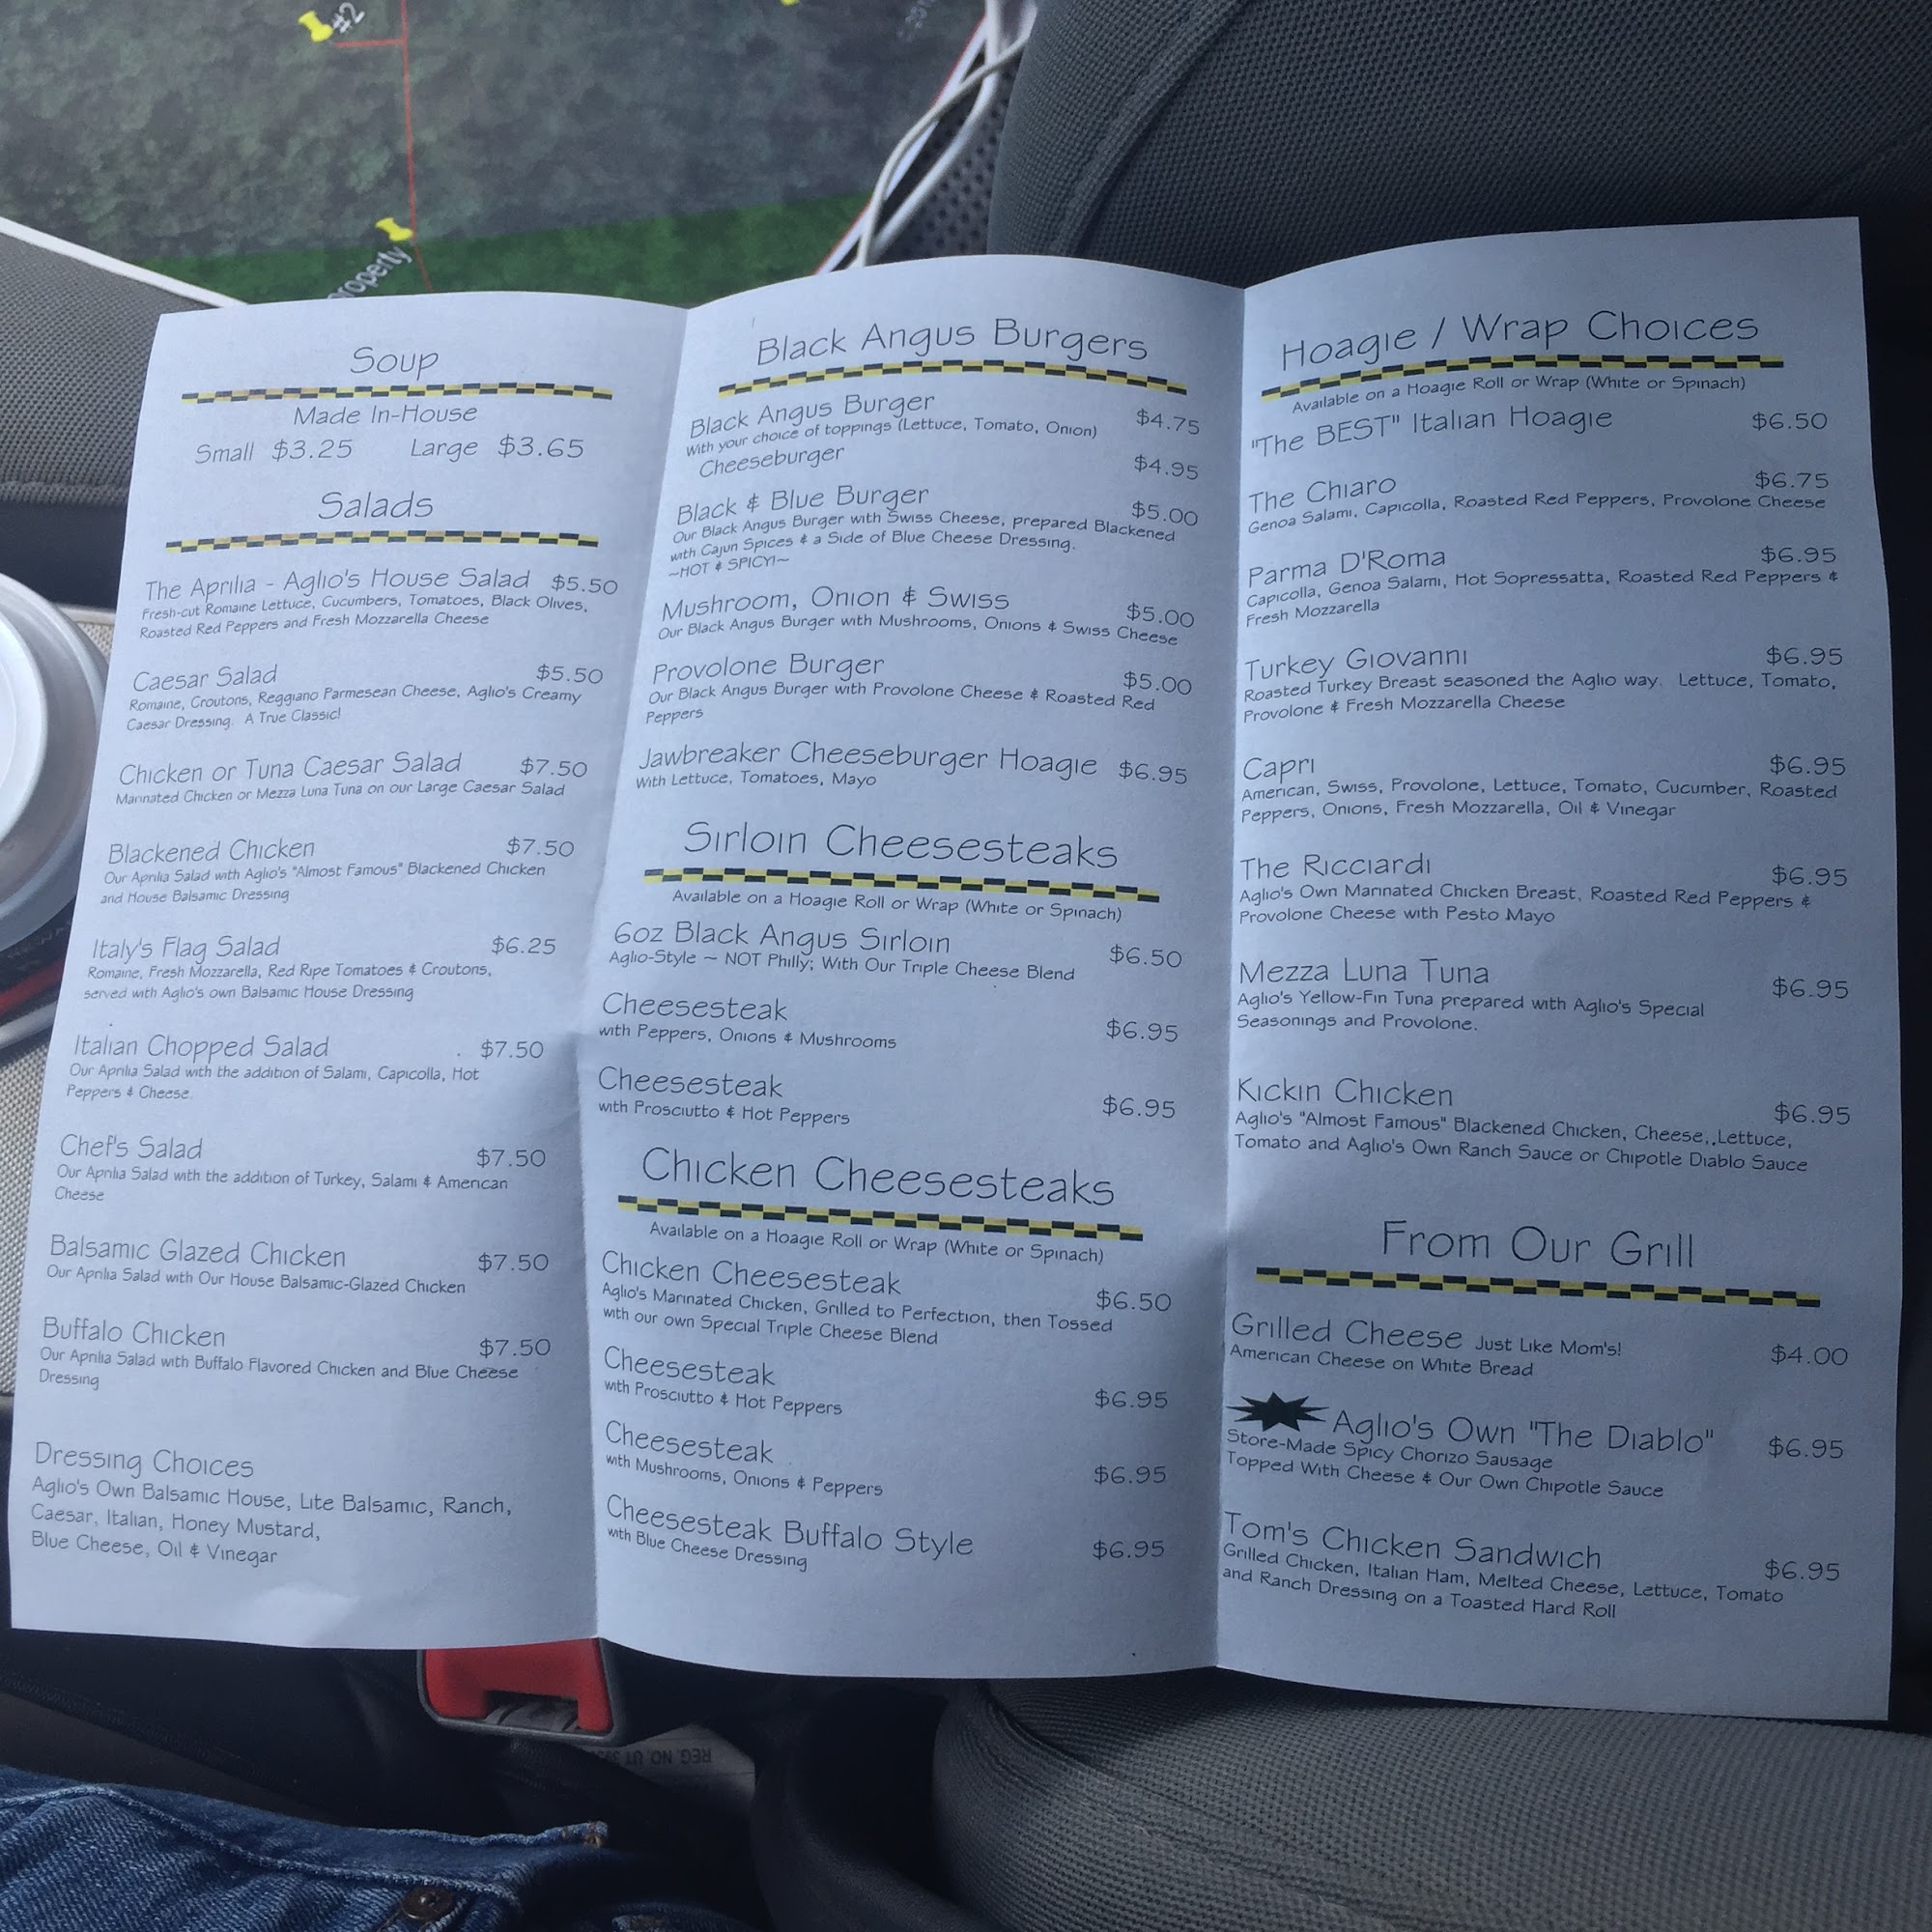 #2
Property
Soup
Made In-House
Small $3.25 Large $3.65
Salads
The Aprilia - Aglio's House Salad $5.50
Fresh-cut Romaine Lettuce, Cucumbers, Tomatoes, Black Olives,
Roasted Red Peppers and Fresh Mozzarella Cheese
Caesar Salad $5.50
Romaine, Croutons, Reggiano Parmesean Cheese, Aglio's Creamy
Caesar Dressing. A True Classic!
Chicken or Tuna Caesar Salad $7.50
Marinated Chicken or Mezza Luna Tuna on our Large Caesar Salad
Blackened Chicken $7.50
Our Aprilia Salad with Aglio's "Almost Famous" Blackened Chicken
and House Balsamic Dressing
Italy's Flag Salad $6.25
Romaine, Fresh Mozzarella, Red Ripe Tomatoes & Croutons,
served with Aglio's own Balsamic House Dressing
Italian Chopped Salad $7.50
Our Aprilia Salad with the addition of Salami, Capicolla, Hot
Peppers & Cheese.
Chef's Salad $7.50
Our Aprilia Salad with the addition of Turkey, Salami & American
Cheese
Balsamic Glazed Chicken $7.50
Our Aprilia Salad with Our House Balsamic-Glazed Chicken
Buffalo Chicken $7.50
Our Aprilia Salad with Buffalo Flavored Chicken and Blue Cheese
Dressing
Dressing Choices
Aglio's Own Balsamic House, Lite Balsamic, Ranch,
Caesar, Italian, Honey Mustard,
Blue Cheese, Oil & Vinegar
Black Angus Burgers
Black Angus Burger $4.75
With your choice of toppings (Lettuce, Tomato, Onion)
Cheeseburger $4.95
Black & Blue Burger $5.00
Our Black Angus Burger with Swiss Cheese, prepared Blackened
with Cajun Spices & a Side of Blue Cheese Dressing.
~HOT & SPICY!~
Mushroom, Onion & Swiss $5.00
Our Black Angus Burger with Mushrooms, Onions & Swiss Cheese
Provolone Burger $5.00
Our Black Angus Burger with Provolone Cheese & Roasted Red
Peppers
Jawbreaker Cheeseburger Hoagie $6.95
With Lettuce, Tomatoes, Mayo
Sirloin Cheesesteaks
Available on a Hoagie Roll or Wrap (White or Spinach)
6oz Black Angus Sirloin $6.50
Aglio-Style ~ NOT Philly; With Our Triple Cheese Blend
Cheesesteak $6.95
with Peppers, Onions & Mushrooms
Cheesesteak $6.95
with Prosciutto & Hot Peppers
Chicken Cheesesteaks
Available on a Hoagie Roll or Wrap (White or Spinach)
Chicken Cheesesteak $6.50
Aglio's Marinated Chicken, Grilled to Perfection, then Tossed
with our own Special Triple Cheese Blend
Cheesesteak $6.95
with Prosciutto & Hot Peppers
Cheesesteak $6.95
with Mushrooms, Onions & Peppers
Cheesesteak Buffalo Style $6.95
with Blue Cheese Dressing
Hoagie / Wrap Choices
Available on a Hoagie Roll or Wrap (White or Spinach)
"The BEST" Italian Hoagie $6.50
The Chiaro $6.75
Genoa Salami, Capicolla, Roasted Red Peppers, Provolone Cheese
Parma D'Roma $6.95
Capicolla, Genoa Salami, Hot Sopressatta, Roasted Red Peppers &
Fresh Mozzarella
Turkey Giovanni $6.95
Roasted Turkey Breast seasoned the Aglio way. Lettuce, Tomato,
Provolone & Fresh Mozzarella Cheese
Capri $6.95
American, Swiss, Provolone, Lettuce, Tomato, Cucumber, Roasted
Peppers, Onions, Fresh Mozzarella, Oil & Vinegar
The Ricciardi $6.95
Aglio's Own Marinated Chicken Breast, Roasted Red Peppers &
Provolone Cheese with Pesto Mayo
Mezza Luna Tuna $6.95
Aglio's Yellow-Fin Tuna prepared with Aglio's Special
Seasonings and Provolone.
Kickin Chicken $6.95
Aglio's "Almost Famous" Blackened Chicken, Cheese,.Lettuce,
Tomato and Aglio's Own Ranch Sauce or Chipotle Diablo Sauce
From Our Grill
Grilled Cheese Just Like Mom's! $4.00
American Cheese on White Bread
Aglio's Own "The Diablo" $6.95
Store-Made Spicy Chorizo Sausage
Topped With Cheese & Our Own Chipotle Sauce
Tom's Chicken Sandwich $6.95
Grilled Chicken, Italian Ham, Melted Cheese, Lettuce, Tomato
and Ranch Dressing on a Toasted Hard Roll
REG. NO. UT